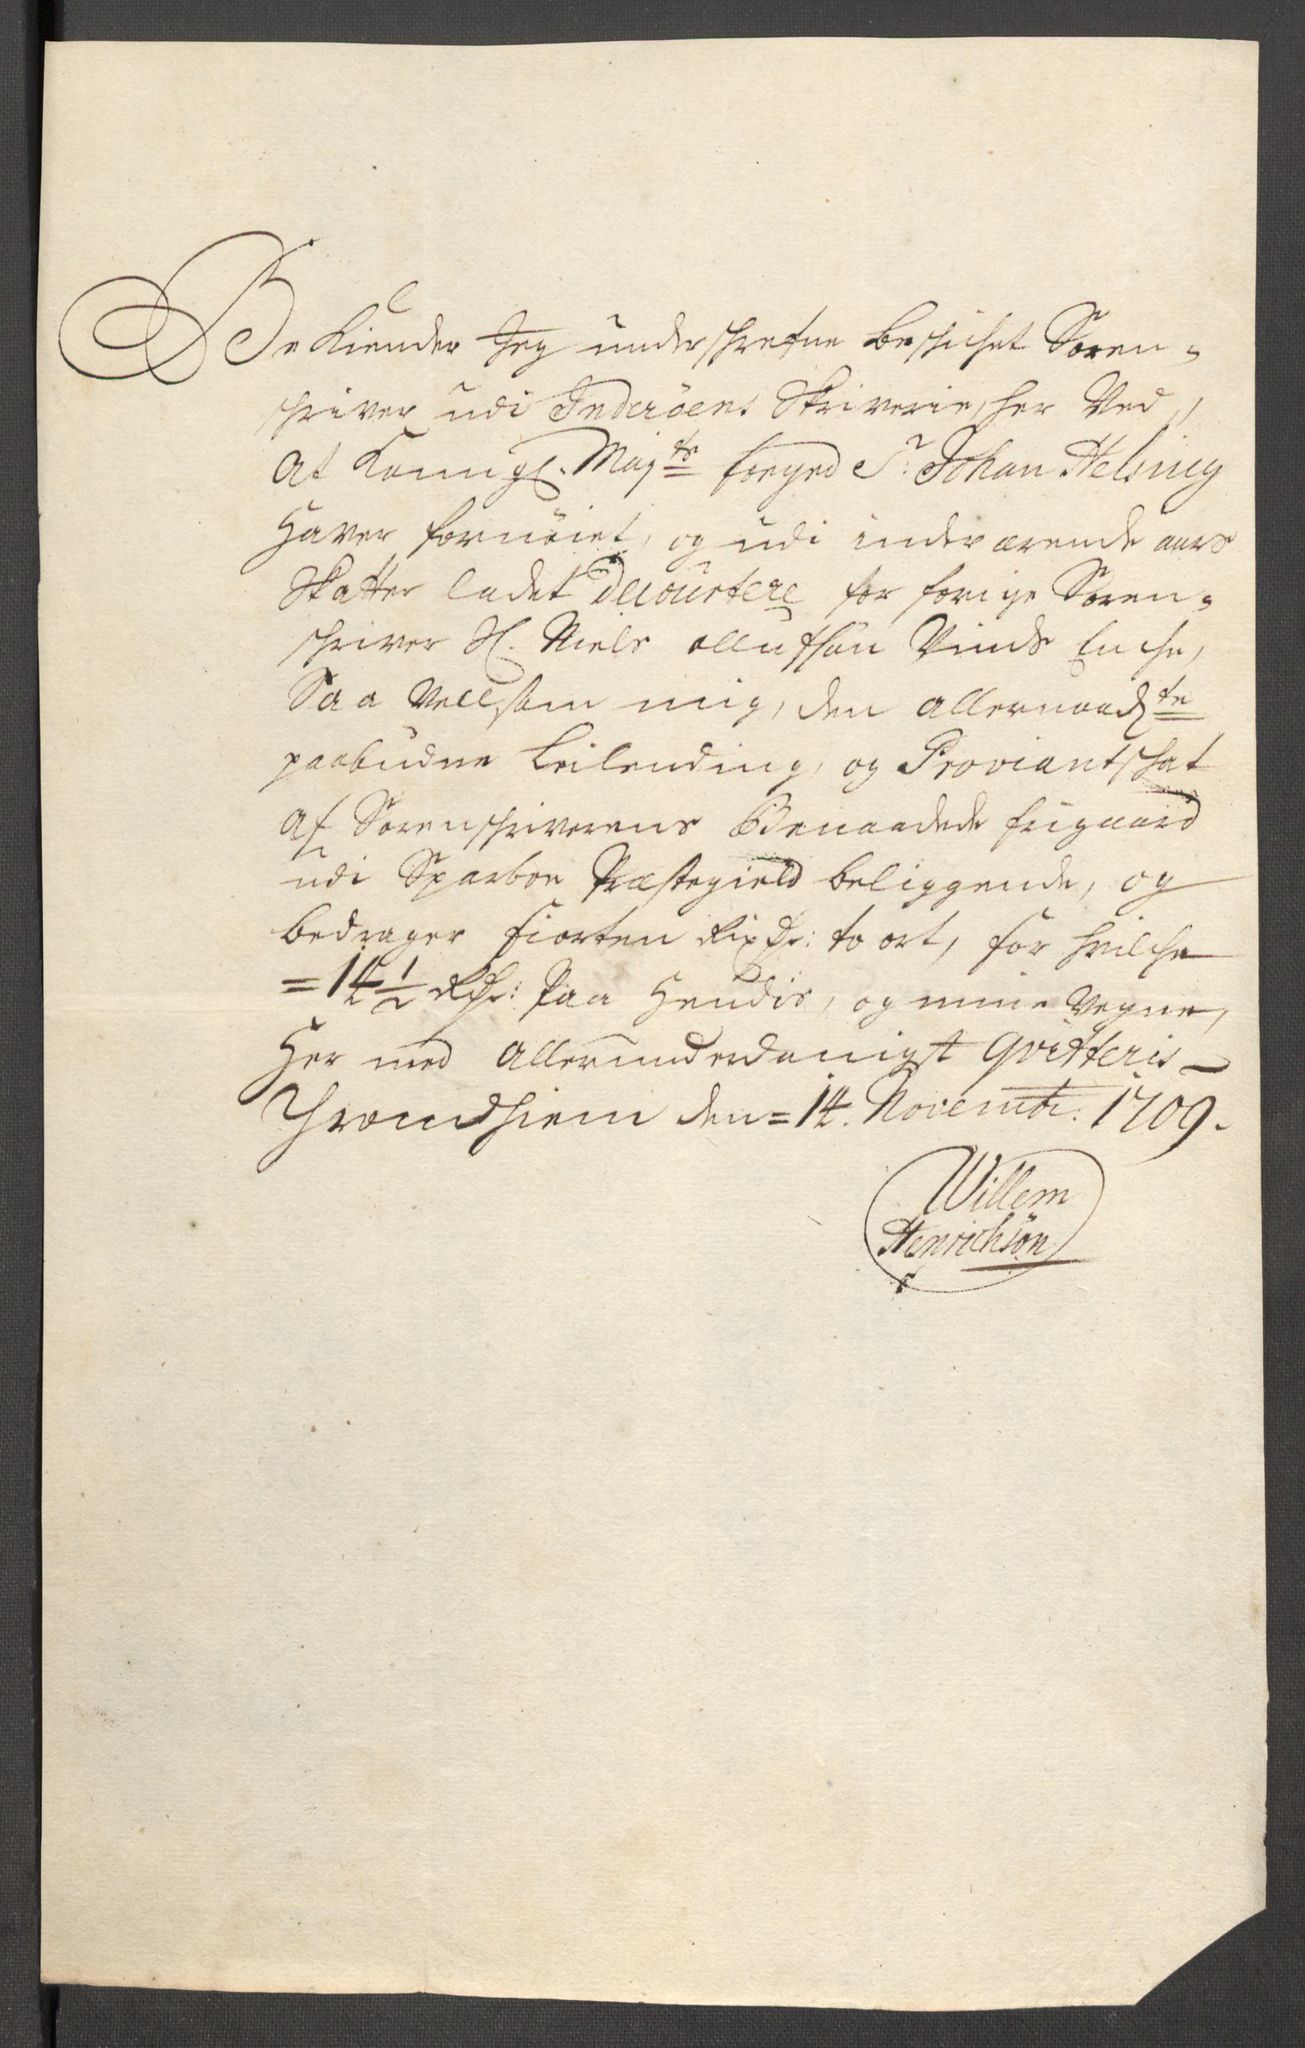 Bekiender Jeg underschrefne beschichet Soren-
schriver udi Inderöens Skriverie, her Ved,
At Kongl. Maÿts foeged Sr. Johan Helsing
Haver fornöiet, og udi indeværende aars
Skatter ladet Decourtere for forige Soren-
schriver Sl. Niels ollufsøn Vinds Enche,
Saa Vell som mig, den allernaadste
paabudne Leilending, og Proviantschat
Af Sorenschriverens Benaadede frigaard
udi Sparboe Præstegield beliggende, og
bedrager fiorten Rixdr: to ort, for hvilche
=14½ Rdr: Paa Hendis, og mine Vegne,
Her med Allerunderdanigst qvitteris
Tromdhiem den=14. Novembr: 1709.
Willem
Henrichsön